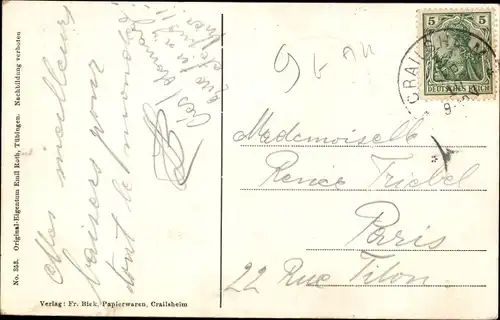 Mes meilleurs
baisers pour
tout le monde
C'est dommage
que
No. 355. Original-Eigentum Emil Roth, Tübingen. Nachbildung verboten
Verlag: Fr. Bick, Papierwaren, Crailsheim
5 5
DEUTSCHES REICH
CRAILSHEIM
Mademoiselle
Renée Triebel
Paris
22 Rue Titon.